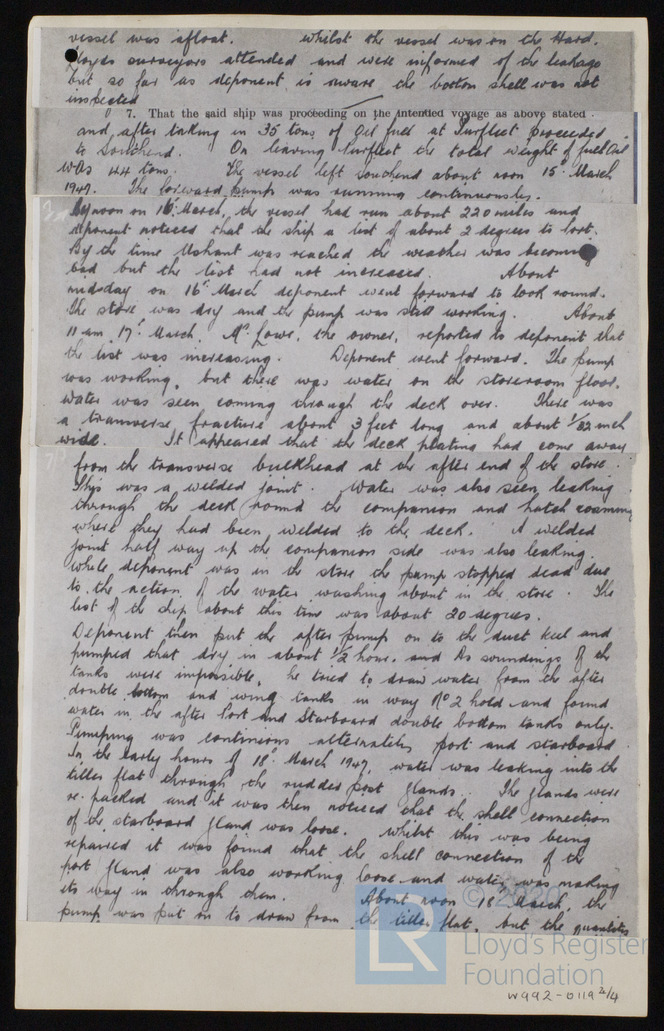 vessel was afloat. Whilst the vessel was on the Hard.
Lloyds surveyors attended and were informed of the leakage
but so far as deponent is aware the bottom shell was not
inspected
7. That the said ship was proceeding on the intended voyage as above stated
and, after taking in 35 tons of Oil fuel at Purfleet proceeded
to Southend. On leaving Purfleet the total weight of fuel Oil
was 44 tons. The vessel left Southend about noon 15th March
1947. The forward pump was running continuously.
By noon on 16th March, the vessel had run about 220 miles and
deponent noticed that the ship a list of about 2 degrees to Port.
By the time Ushant was reached the weather was becoming
bad but the list had not increased. About
midday on 16th March deponent went forward to look round.
The store was dry and the pump was still working. About
11 am 17th March Mr. Lowe, the owner, reported to deponent that
the list was increasing. Deponent went forward. The pump
was working, but there was water on the storeroom floor.
Water was seen coming through the deck over. There was
a transverse fracture about 3 feet long and about 1/32 inch
wide. It appeared that the deck plating had come away
from the transverse bulkhead at the after end of the store.
This was a welded joint. Water was also seen leaking
through the deck round the companion and hatch coaming
where they had been welded to the deck. A welded
joint half way up the companion side was also leaking.
While deponent was in the store the pump stopped dead due
to the action of the water washing about in the store. The
list of the ship about this time was about 20 degrees.
Deponent then put the after pump on to the duct keel and
pumped that dry in about 1/2 hour, and As soundings of the
tanks were impossible, he tried to draw water from the after
double bottom and wing tanks in way No 2 hold and found
water in the after Port and Starboard double bottom tanks only.
Pumping was continuous alternately port and starboard
In the early hours of 18th March 1947, water was leaking into the
tiller flat through the rudder post glands. The glands were
re-packed and it was then noticed that the shell connection
of the starboard gland was loose. Whilst this was being
repaired it was found that the shell connection of the
port gland was also working loose and water was making
its way in through them. About noon 18th March the
pump was put on to draw from the tiller flat, but the quantities
© 2020
LR
Lloyd's Register
Foundation
W992-0119 2/4